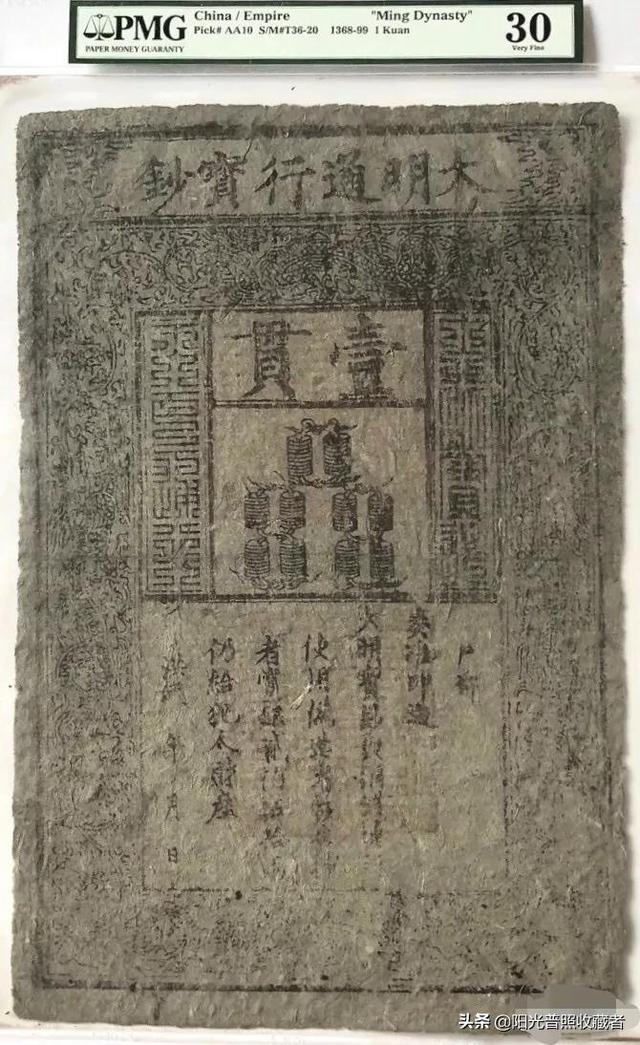 PMG
PAPER MONEY GUARANTY
China / Empire "Ming Dynasty"
Pick# AA10 S/M#T36-20 1368-99 1 Kuan
30
Very Fine
大明通行寶鈔
壹貫
戶部
奏准印造
大明寶鈔與銅錢通
使用偽造者
者賞銀貳佰伍拾
仍給犯人財產
洪武 年 月 日
头条 @阳光普照收藏者